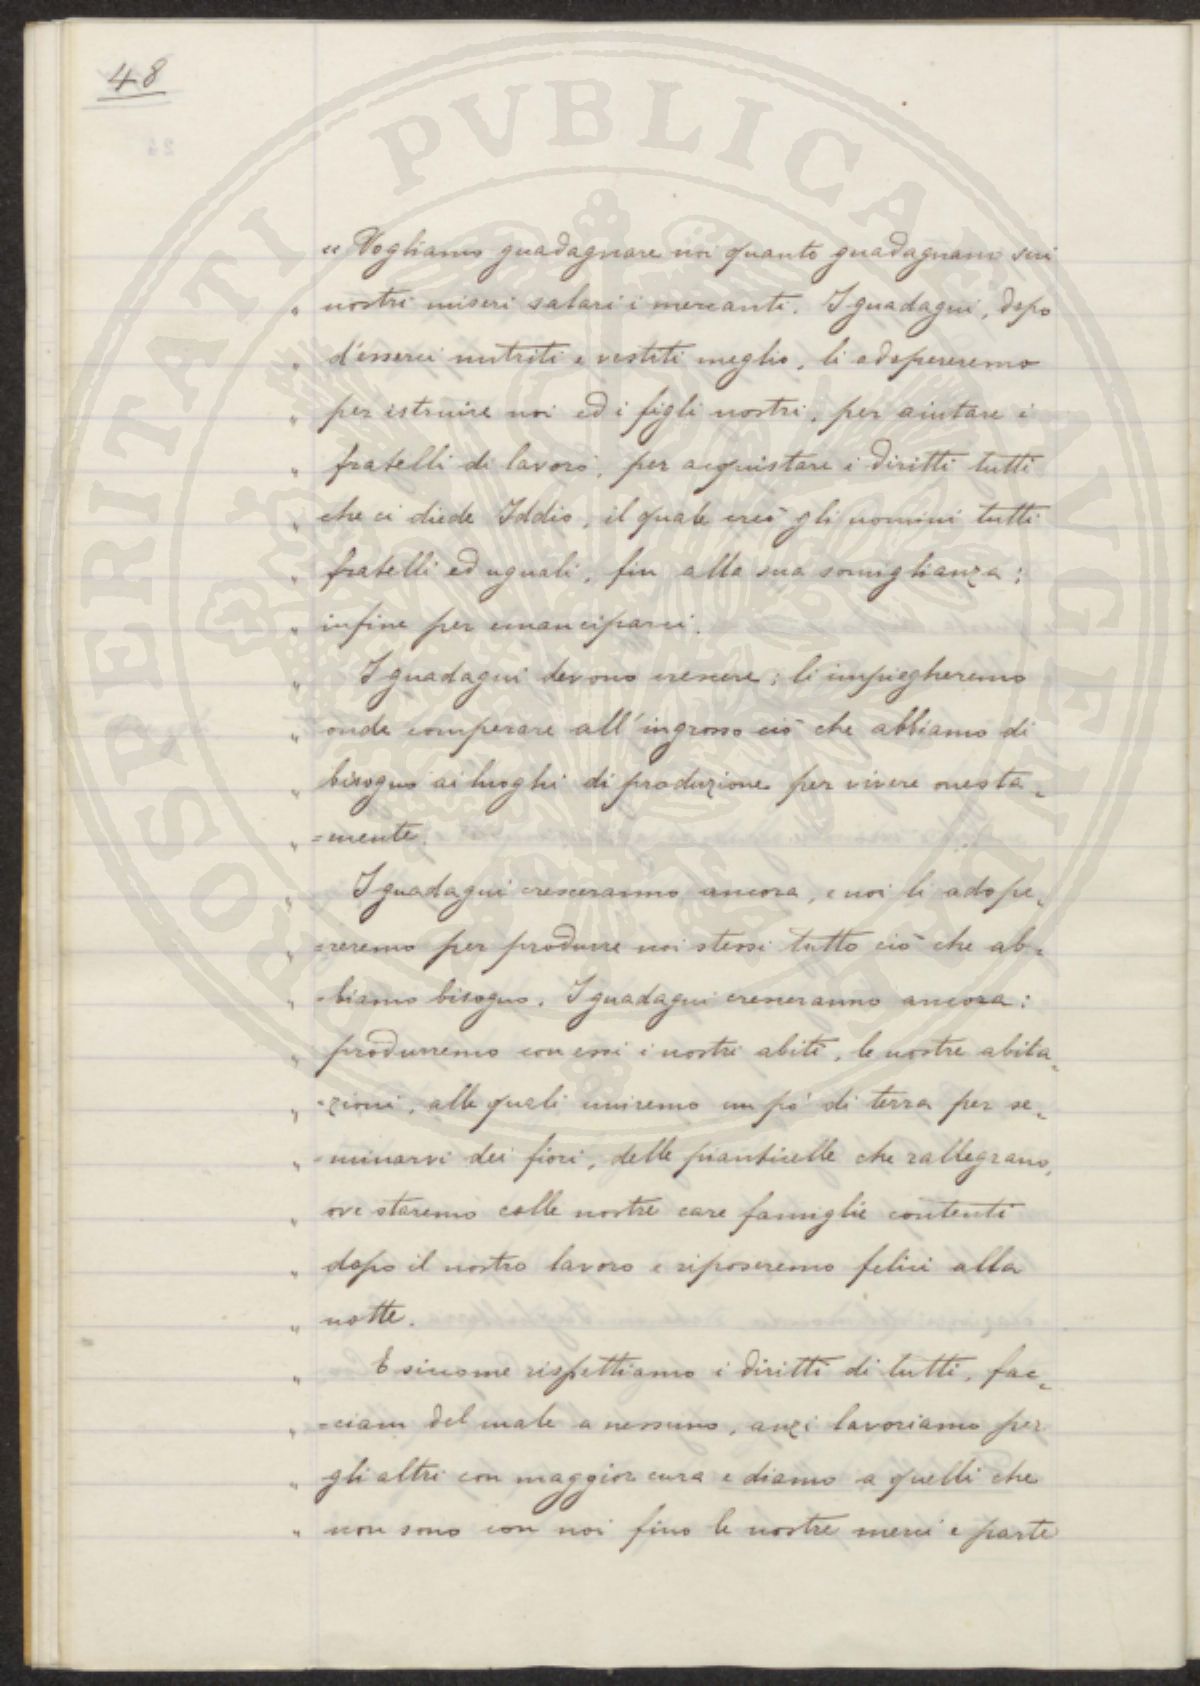 48
PROSPERITATI PVBLICAE AVGENDAE
« Vogliamo guadagnare noi quanto guadagnano sui
" nostri miseri salari i mercanti. I guadagni, dopo
" d'esserci nutriti e vestiti meglio, li adopereremo
" per istruire noi ed i figli nostri, per aiutare i
" fratelli di lavoro, per acquistare i diritti tutti
" che ci diede Iddio, il quale creò gli uomini tutti
" fratelli ed uguali, fin alla sua somiglianza;
" infine per emanciparci.
" I guadagni devono crescere; li impiegheremo
" onde comperare all'ingrosso ciò che abbiamo di
" bisogno ai luoghi di produzione per vivere onesta=
" =mente.
" I guadagni cresceranno ancora, e noi li adope=
" =reremo per produrre noi stessi tutto ciò che ab=
" =biamo bisogno. I guadagni cresceranno ancora:
" produrremo con essi i nostri abiti, le nostre abita=
" =zioni, alle quali uniremo un pò di terra per se=
" =minarvi dei fiori, delle pianticelle che rallegrano,
" ove staremo colle nostre care famiglie contenti
" dopo il nostro lavoro e riposeremo felici alla
" notte.
" E siccome rispettiamo i diritti di tutti, fac=
" =ciam del male a nessuno, anzi lavoriamo per
" gli altri con maggior cura e diamo a quelli che
" non sono con noi fino le nostre merci e parte